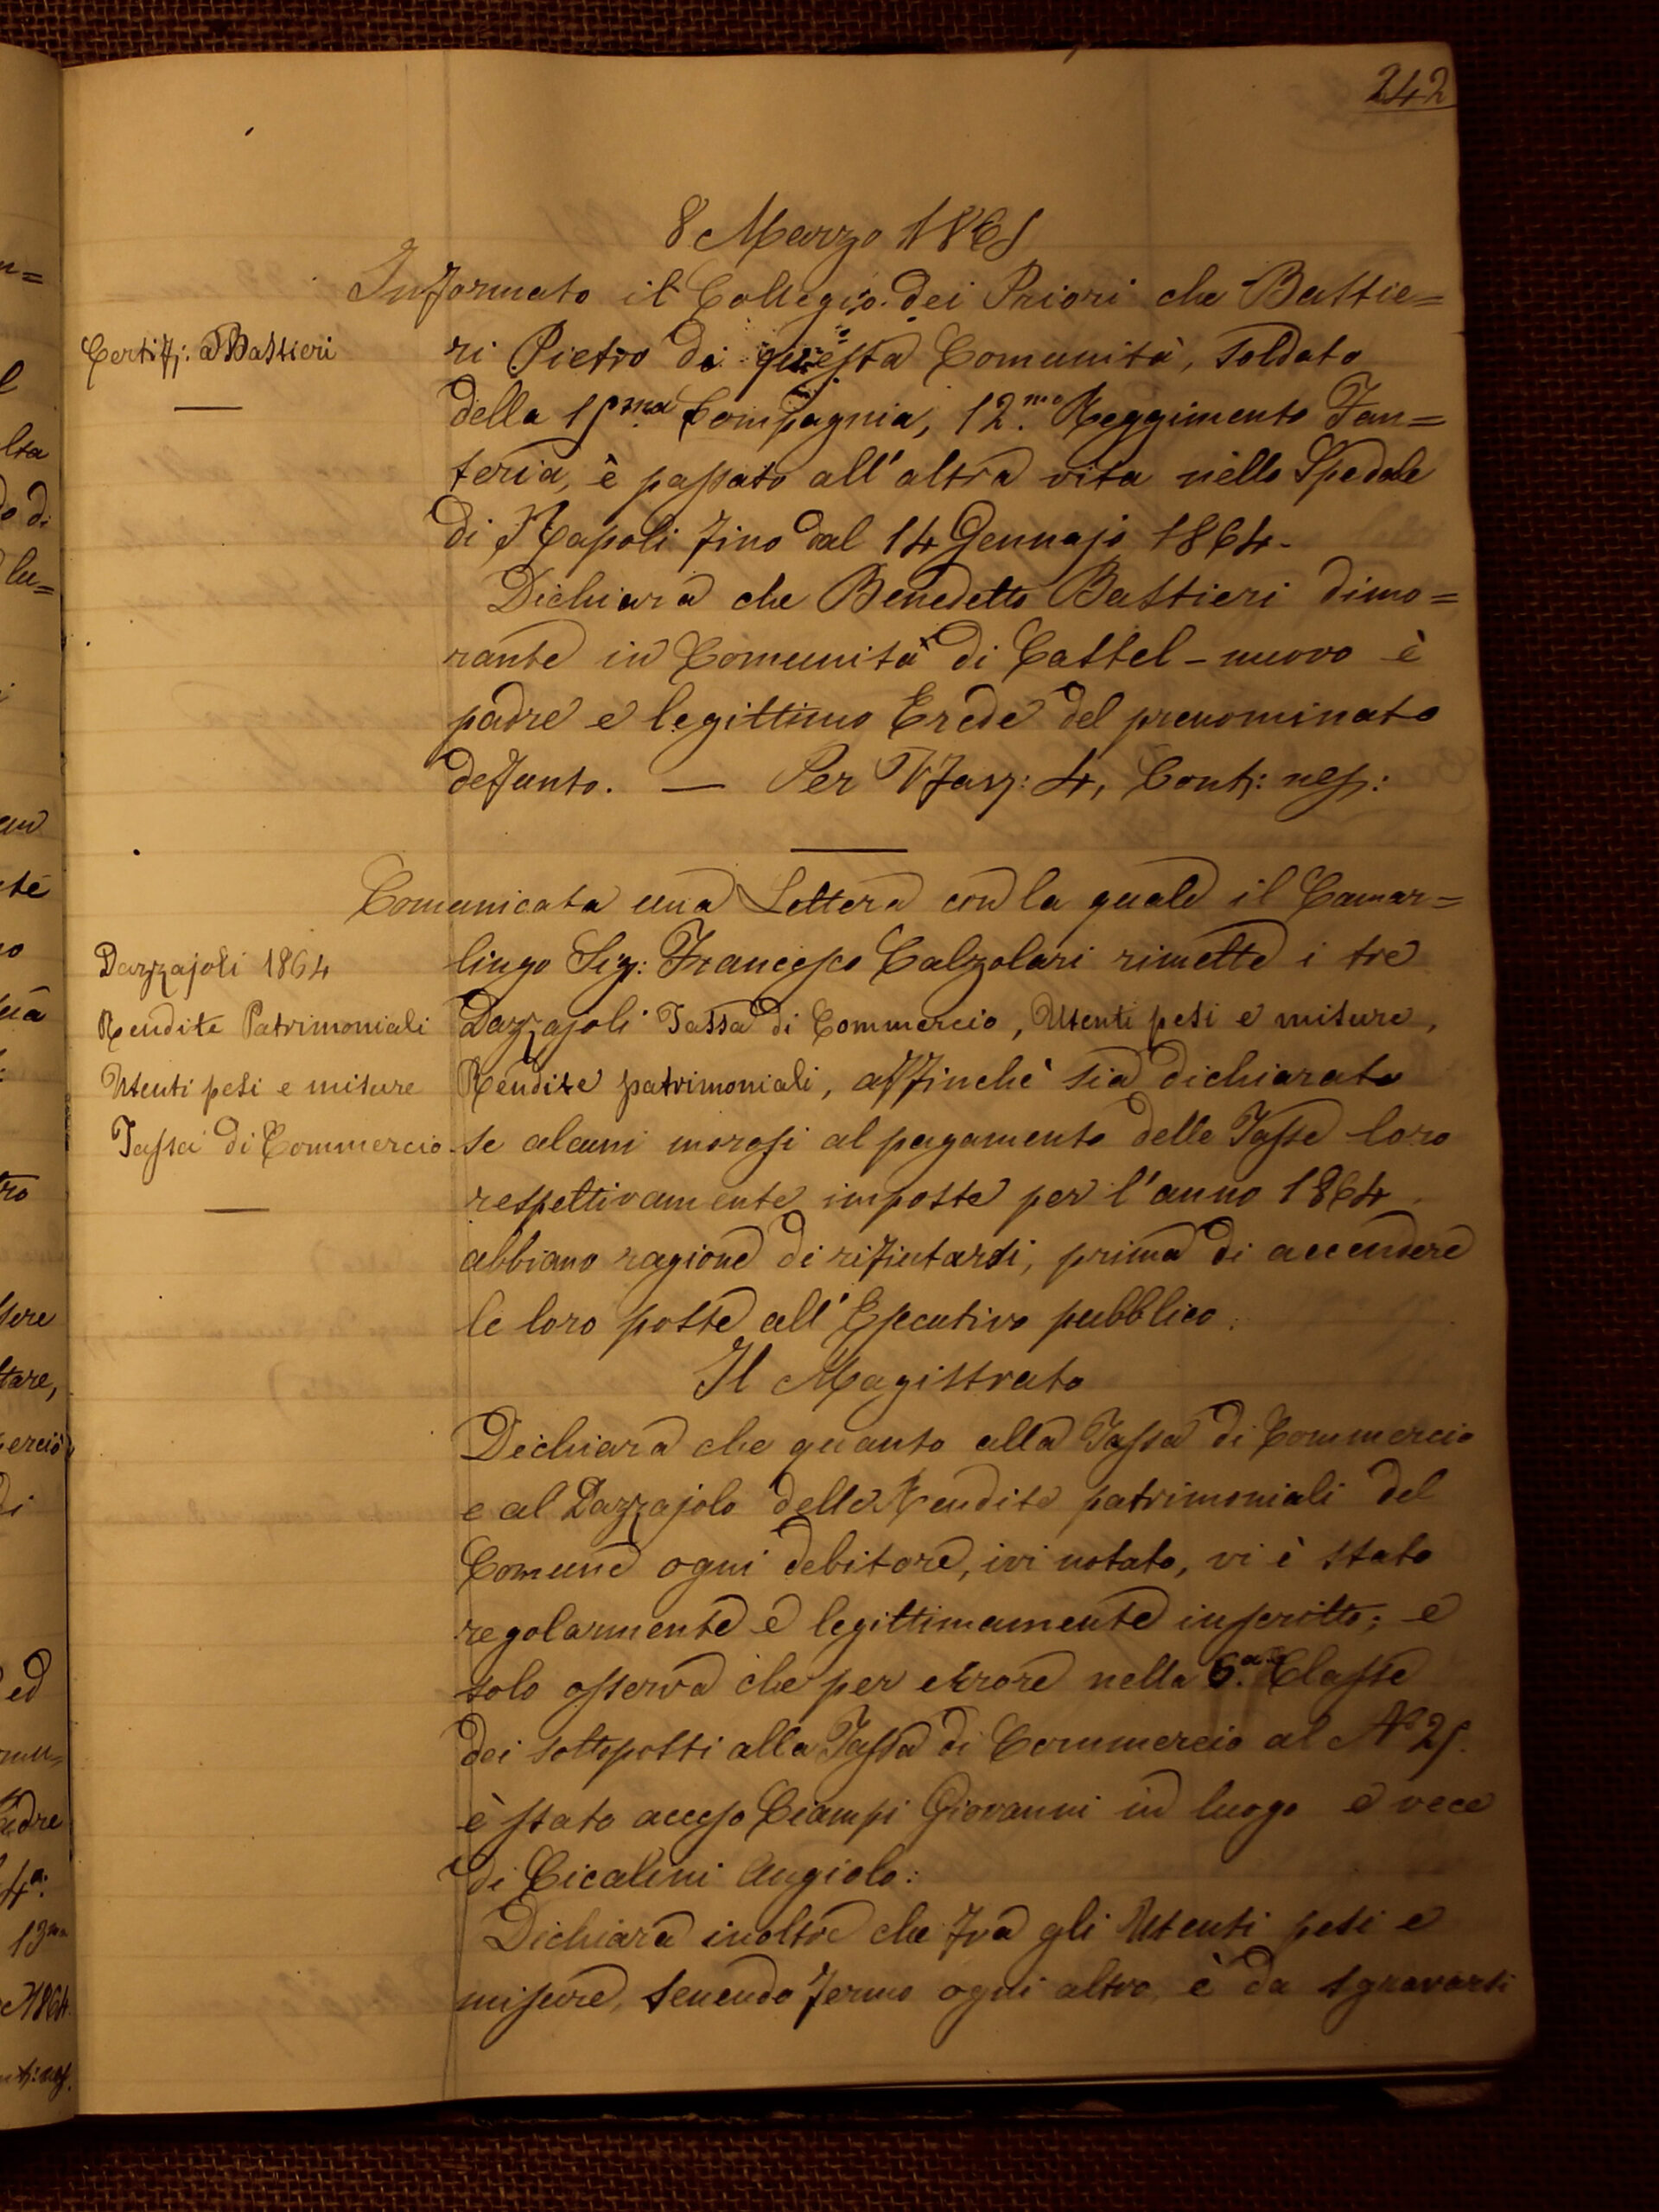 242
8 Marzo 1865
Informato il Collegio dei Priori che Battie=
Certifi: a Battieri
ri Pietro di questa Comunità, soldato
della 15ma Compagnia, 12.mo Reggimento Fan=
teria, è passato all'altra vita nello Spedale
di Napoli fino dal 14 Gennajo 1864.
Dichiara che Benedetto Battieri dimo=
rante in Comunità di Castel-nuovo è
padre e legittimo Erede del prenominato
defunto. — Per Vfavi: 4, Contj: nes:
Comunicata una Lettera con la quale il Camar=
lingo Sig: Francesco Calzolari rimette i tre
Dazzajoli 1864
Dazzajoli Tassa di Commercio, Utenti pesi e misure,
Rendite Patrimoniali
Rendite patrimoniali, affinchè sia dichiarato
Utenti pesi e misure
se alcuni morosi al pagamento delle Tasse loro
Tassa di Commercio
respettivamente imposte per l'anno 1864
abbiano ragione di rifiutarsi, prima di accendere
le loro poste all'Esecutivo pubblico.
Il Magistrato
Dichiara che quanto alla Tassa di Commercio
e al Dazzajolo delle Rendite patrimoniali del
Comune ogni debitore, ivi notato, vi è stato
regolarmente e legittimamente inscritto; e
solo osserva che per errore nella 6.a Classe
dei sottoposti alla Tassa di Commercio al No 25.
è stato acceso Ciampi Giovanni in luogo e vece
di Cicalini Angiolo:
Dichiara inoltre che fra gli Utenti pesi e
misure, tenendo fermo ogni altro, è da sgravarsi